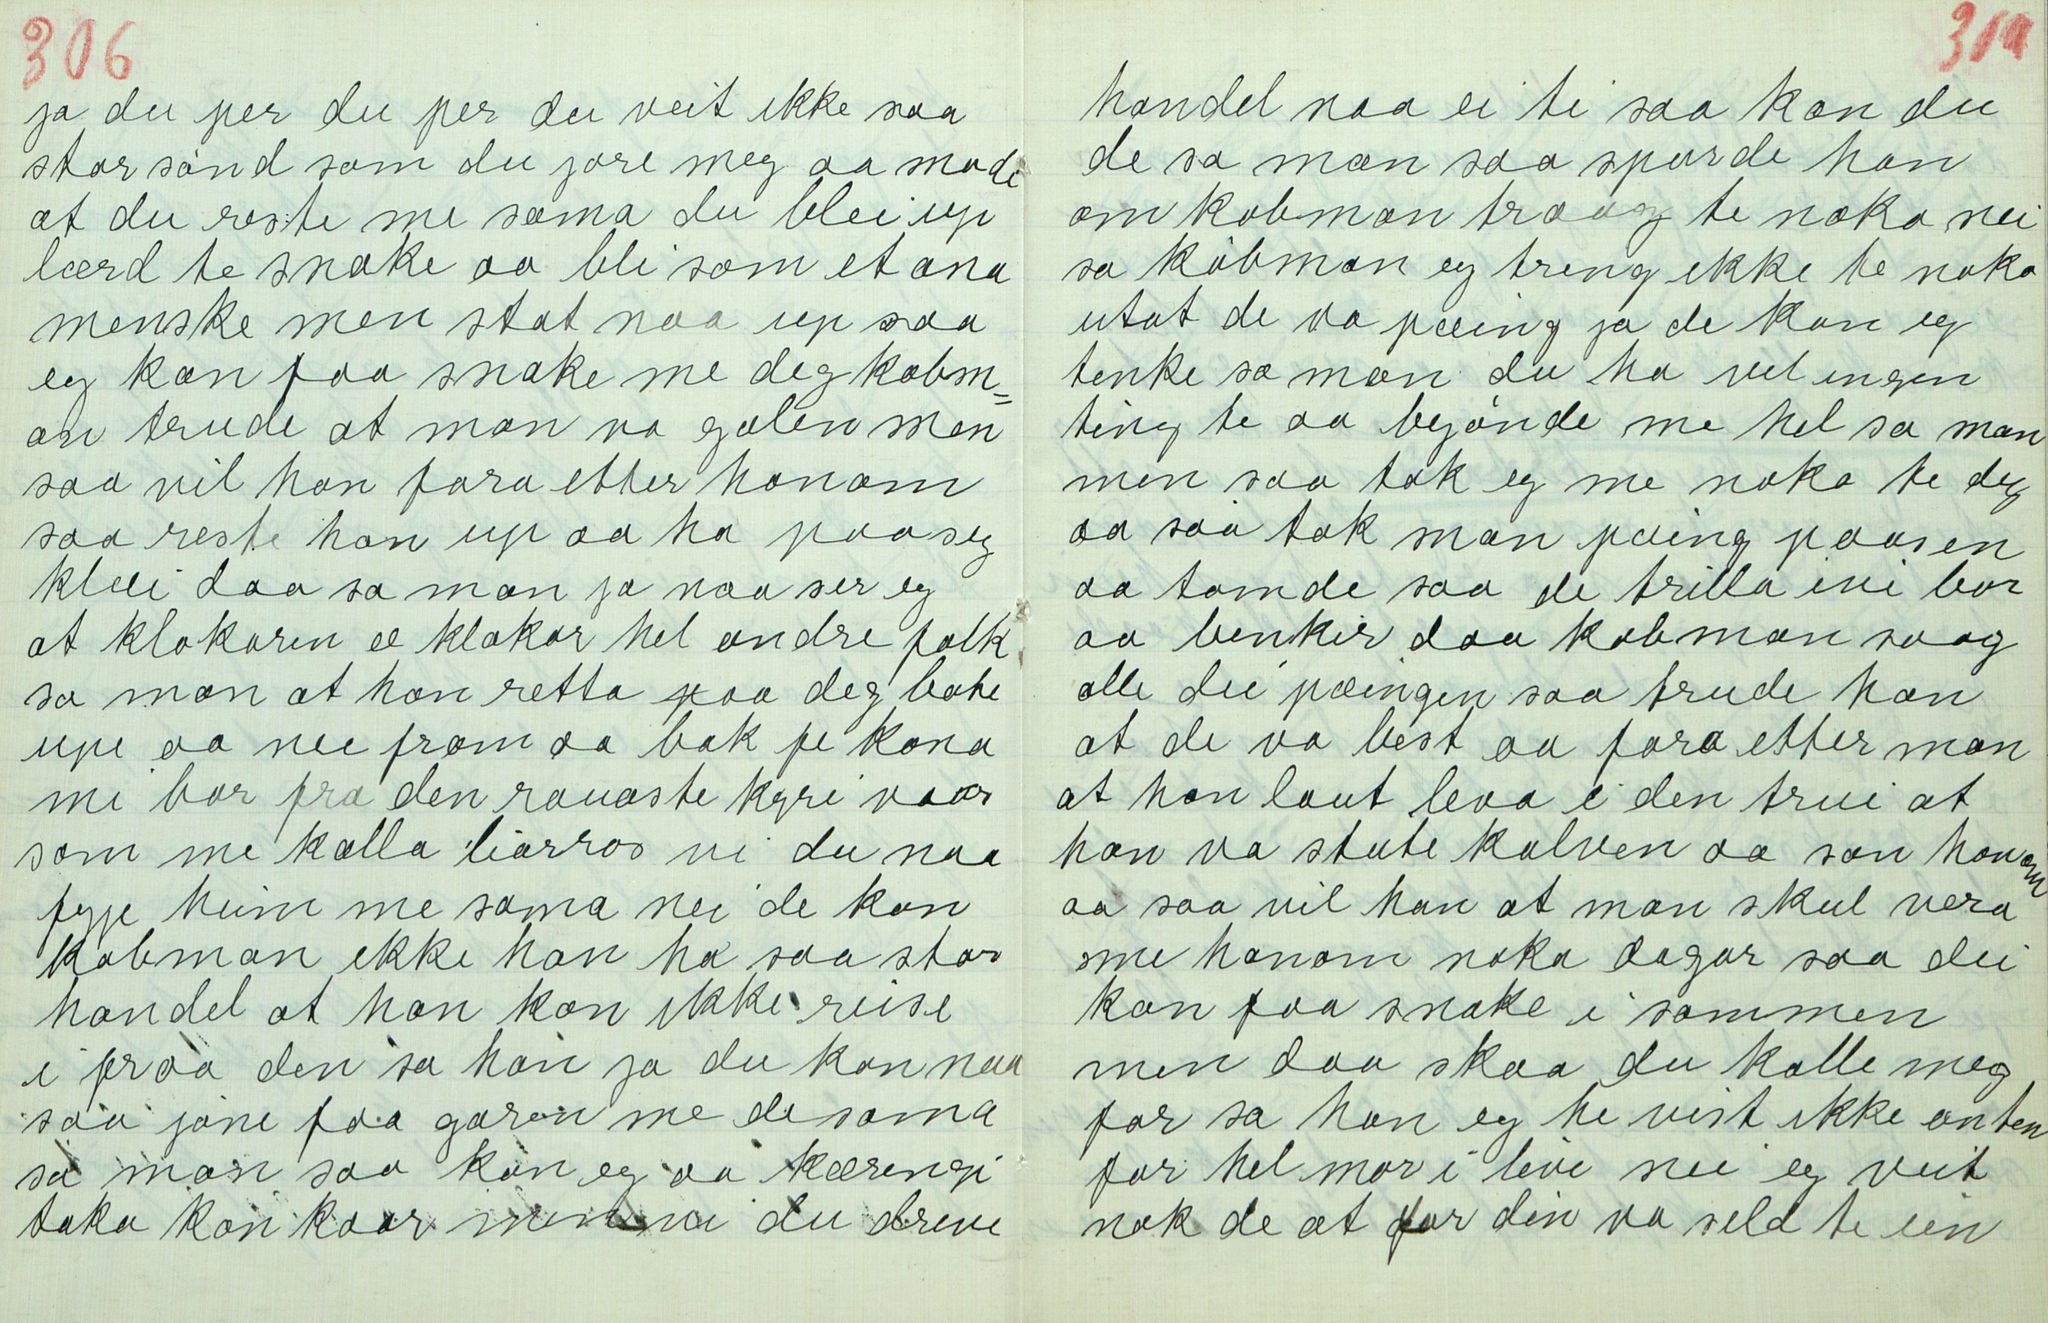 306
ja du per du per du veit ikke saa
stor sònd som du jore meg aa mode
at du reste me soma du blei up
lærd te snake aa bli som et ana
menske men stat naa up saa
eg kan faa snake me deg kobm=
an trude at man va galen men
saa vil han fara etter honom
saa reste han up aa ha paa seg
klæi daa sa man ja naa ser eg
at klokaren æ klokar hel andre folk
sa man at han retta paa deg bote
upe aa nee fram aa bak pe kona
mi bor fra den rauaste kyri vaar
som me kalla liòrros vi du naa
fyje heim me soma nei de kan
kobman ikke han ha saa stor
handel at han kan ikke reise
i fraa den sa han ja du kan naa
saa jòne faa garen me de soma
sa man saa kan eg aa kærengi
taka kon kaar vi du dreve
handel naa ei ti saa kan du
de sa man saa spurde han
om kobman traag te noko nei
sa kòbman eg treng ikke te noko
utat de va pæing ja de kan eg
tenke sa man du ha vel ingen
ting te aa begònde me hel sa man
men saa tok eg me noko te deg
aa saa tok man pæing paasen
aa tomde saa de trilla ivi bor
aa benkir daa kobman saag
alle dei pæingen saa trude han
at de va best aa fara etter man
at han laut leva i den trui at
han va stute kalven aa son honom
aa saa vil han at man skul vera
me honom noka dagar saa dei
kan faa snake i sammen
men daa skaa du kalle meg
far sa han eg he vist ikke anten
far hel mor i live nei eg veit
nok de at far din va seld te ein